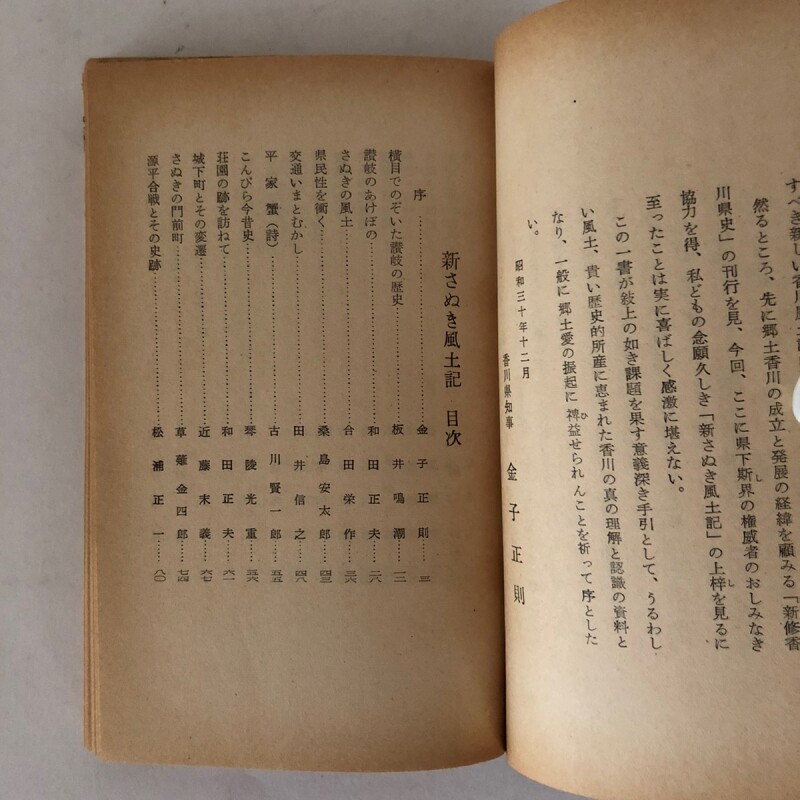 すべき新しい香川風土記
然るところ、先に郷土香川の成立と発展の経緯を顧みる「新修香
川県史」の刊行を見、今回、ここに県下斯界の権威者のおしみなき
協力を得、私どもの念願久しき「新さぬき風土記」の上梓を見るに
至ったことは実に喜ばしく感激に堪えない。
この一書が敍上の如き課題を果す意義深き手引として、うるわし
い風土、貴い歴史的所産に恵まれた香川の真の理解と認識の資料と
なり、一般に郷土愛の振起に裨益せられんことを祈って序とした
い。
昭和三十年十二月
香川県知事 金子正則
新さぬき風土記 目次
序……金子正則……三
横目でのぞいた讃岐の歴史……板井鳴潮……一二
讃岐のあけぼの……和田正夫……二六
さぬきの風土……合田栄作……三六
県民性を衝く……桑島安太郎……四三
交通いまとむかし……田井信之……四八
平家蟹(詩)……古川賢一郎……五五
こんぴら今昔史……琴陵光重……五六
荘園の跡を訪ねて……和田正夫……六一
城下町とその変遷……近藤末義……六七
さぬきの門前町……草薙金四郎……七四
源平合戦とその史跡……松浦正一……八〇